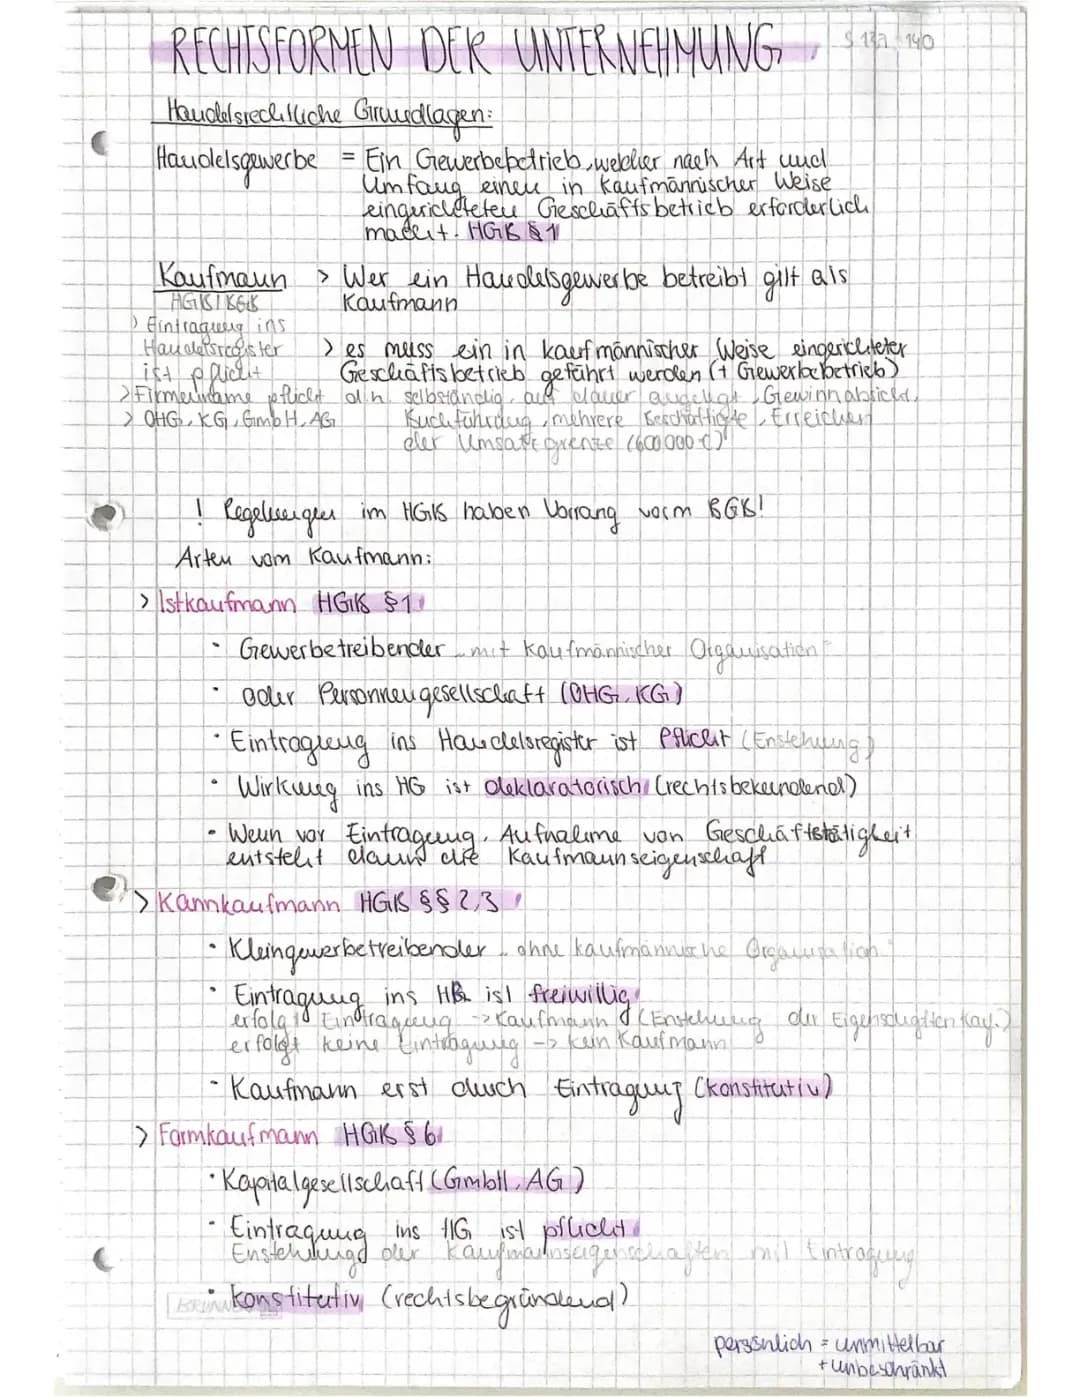 RECHTSFORMEN DER UNTERNEHMUNG S 137 140
Handelsrechtliche Grundlagen:
Handelsgewerbe = Ein Gewerbebetrieb, welcher nach Art und
Umfang einen in kaufmännischer Weise
eingerichteten Geschäftsbetrieb erforderlich
macht. HGB §1
Kaufmann > Wer ein Handelsgewerbe betreibt gilt als
HGB / BGB Kaufmann
> Eintragung ins
Handelsregister > es muss ein in kaufmännischer Weise eingerichteter
ist pflicht Geschäftsbetrieb geführt werden (+ Gewerbebetrieb)
> Firmenname pflicht d.h. selbständig, auf dauer angelegt, Gewinnabsicht,
> OHG, KG, GmbH, AG Buchführung, mehrere Beschäftigte, Erreichen
der Umsatzgrenze (600 000 €)
! Regelungen im HGB haben Vorrang vorm BGB!
Arten vom Kaufmann:
> Istkaufmann HGB §1
• Gewerbetreibender „mit kaufmännischer Organisation"
• oder Personnengesellschaft (OHG, KG)
• Eintragung ins Handelsregister ist Pflicht (Enstehung)
• Wirkung ins HG ist deklaratorisch (rechtsbekundend)
• Wenn vor Eintragung, Aufnahme von Geschäftstätigkeit
entsteht dann die Kaufmannseigenschaft
> Kannkaufmann HGB §§ 2,3
• Kleingewerbetreibender „ohne kaufmännische Organisation"
• Eintragung ins HG ist freiwillig
erfolgt Eintragung -> Kaufmann (Enstehung der Eigenschaften Kay.)
erfolgt keine Eintragung -> kein Kaufmann
• Kaufmann erst durch Eintragung (konstitutiv)
> Formkaufmann HGB § 6
• Kapitalgesellschaft (GmbH, AG)
• Eintragung ins HG ist pflicht
Enstehung der Kaufmannseigenschaften mit Eintragung
• konstitutiv (rechtsbegründend)
persönlich = unmittelbar
+ unbeschränkt